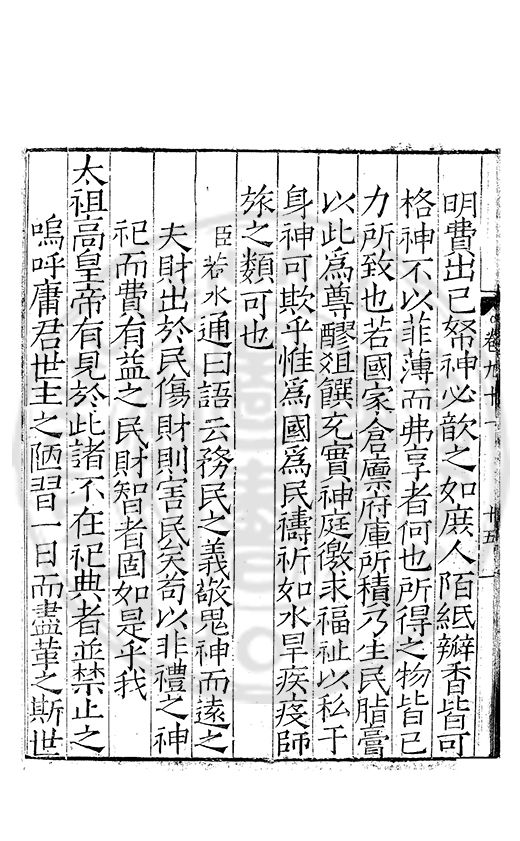 卷九十一 十五
明費出己帑神必歆之如庶人陌紙瓣香皆可
格神不以菲薄而弗享者何也所得之物皆已
力所致也若國家倉廩府庫所積乃生民脂膏
以此為尊醪俎饌充實神庭徼求福祉以私于
身神可欺乎惟為國為民禱祈如水旱疾疫師
旅之類可也
臣若水通曰語云務民之義敬鬼神而遠之
夫財出於民傷財則害民矣苟以非禮之神
祀而費有益之民財智者固如是乎我
太祖高皇帝有見於此諸不在祀典者並禁止之
嗚呼庸君世主之陋習一日而盡革之斯世